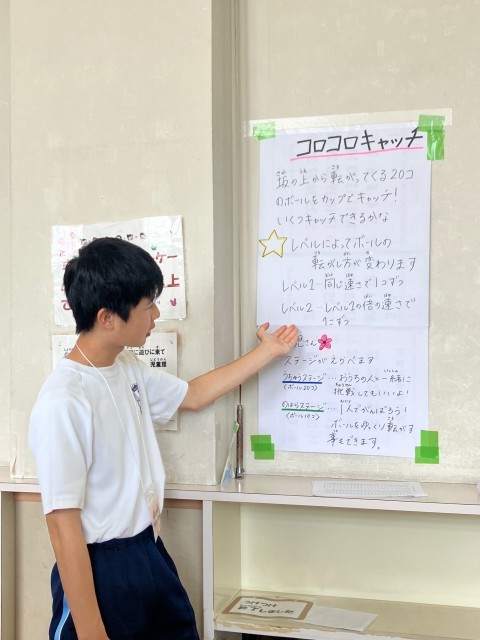 コロコロキャッチ
坂の上から転がってくる20コ
のボールをカップでキャッチ!
いくつキャッチできるかな
レベルによってボールの
転がし方が変わります
レベル1…同じ速さで1コずつ
レベル2…レベル1の倍の速さで
1こずつ
児さん
ステージがえらべます
うちゅうステージ…おうちの人と一緒に
(ボール20コ) 挑戦してもいいよ!
のはらステージ…1人でがんばろう!
(ボール10コ) ボールをゆっくり転がす
事もできます。
に遊びに来て
児童館
終了しました